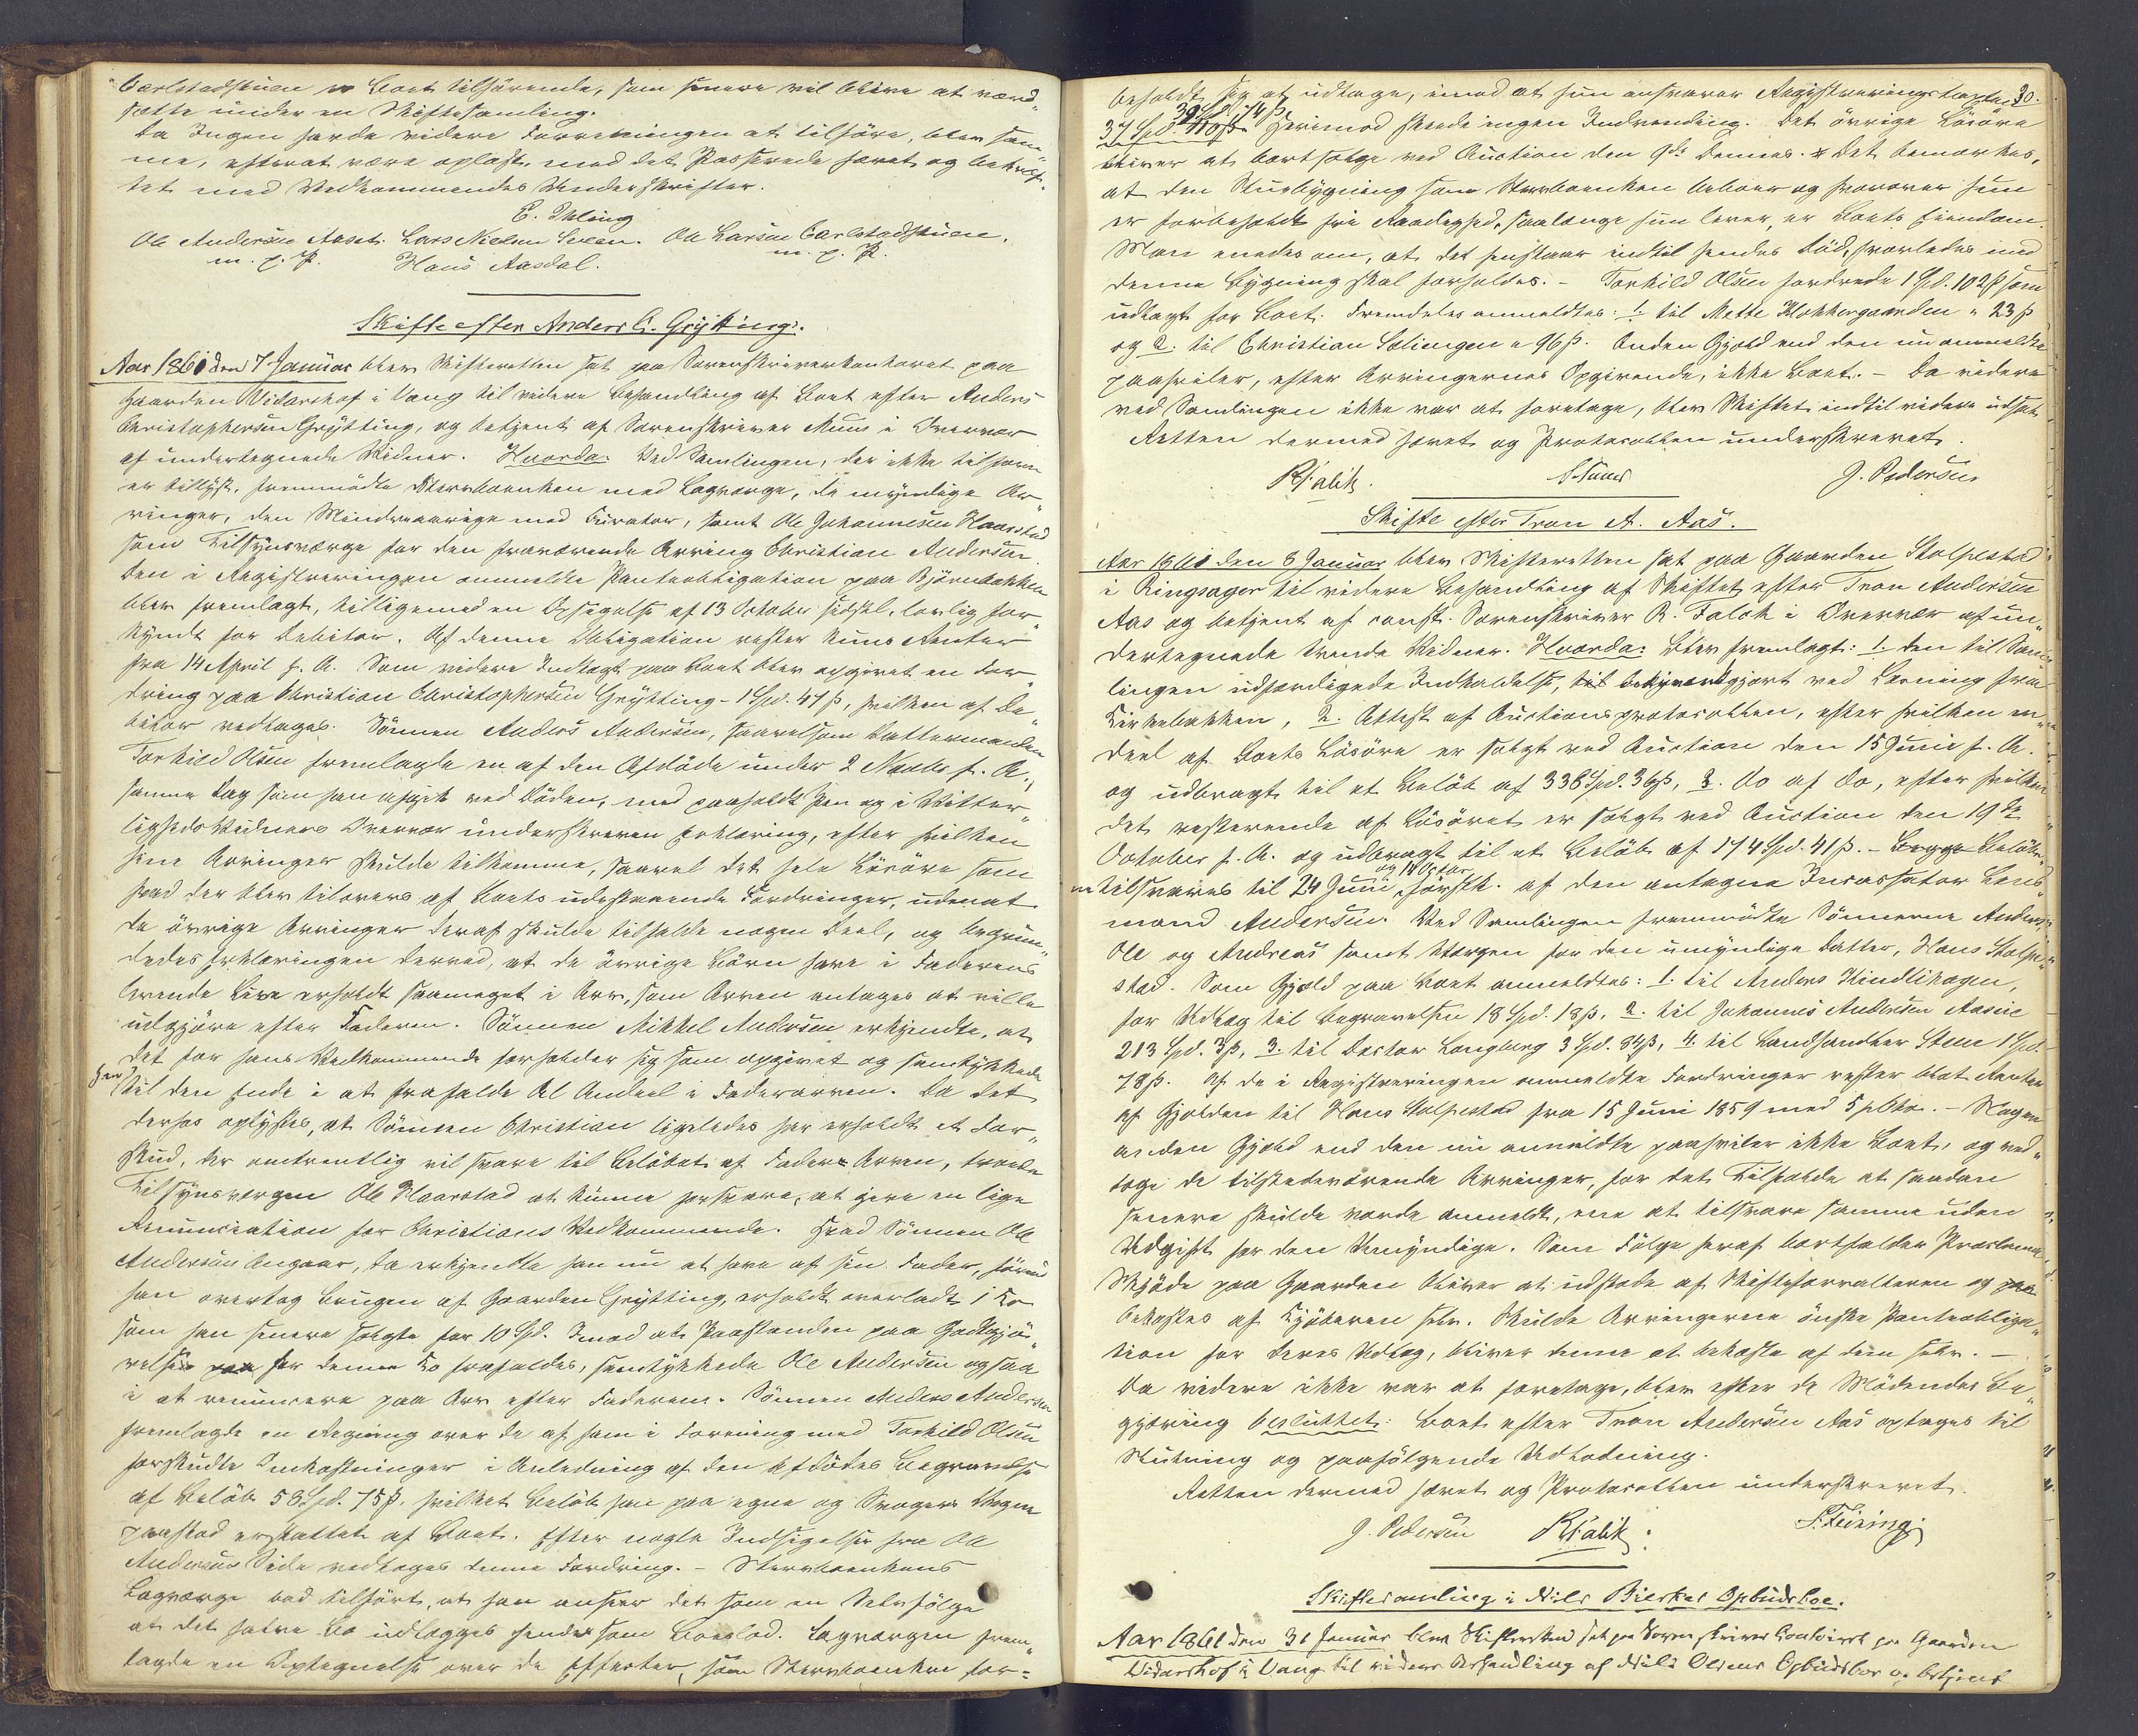 Carlstadstuen Boet tilhörende, som senere vil blive at værd„
sætte under en Skiftesamling.
Da Ingen havde videre Forretningen at tilföre, blev sam„
me, efterat være oplæst, med det Passerede hævet og bekræf„
tet med Vedkommendes Underskrifter.
E. Ihling
Ole Andersen Aaset. Lars Nielsen Sveen. Ole Larsen Carlstadstuen.
m. p. P. Hans Aasdal. m. p. P.
Skifte efter Anders C. Grÿtting.
Aar 1861 den 7 Januar blev Skifteretten sat paa Sorenskriverkontoret paa
Gaarden Vidarshof i Vang til videre Behandling af Boet efter Anders
Christophersen Grÿtting, og betjent af Sorenskriver Muus i Overvær
af undertegnede Vidner. Hvorda: Ved Samlingen, der ikke tilforn
er berettiget, fremmödte Stervboenken med Lagværge, de myndige Ar„
vinger, den Mindreaarige med Curator, samt Ole Johannesen Haarstad
som Tilsynsværge for den fraværende Arving Christian Andersen.
Den i Registreringen anmeldte Panteobligation paa Björnebakken
blev fremlagt, tilligemed en Opsigelse af 13 October sidstl. lovlig for„
kyndt for Debitor. Af denne Obligation rester kuns Renter
fra 14 April f. A. Som videre Indtægt paa Boet blev opgivet en For„
dring paa Christian Christophersen Grÿtting - 1 Spd. 47 ß, hvilken af De„
bitor vedtages. Sönnen Anders Andersen, saavelsom Dattermanden
Torkild Olsen fremlagde en af den Afdöde under 2 Novbr f. A.,
samme Dag som han afgik ved Döden, med paaholdt Pen og i Vitter„
lighedsvidners Overvær underskreven Erklæring, efter hvilken
hine Arvinger skulde tilkomme, saavel det hele Lösöre som
hvad der blev tilovers af Boets udestaaende Fordringer, uden at
de övrige Arvinger deraf skulde tilfalde nogen Deel, og begrun„
dedes Erklæringen derved, at de övrige Börn have i Faderens
levende Live erholdt saameget i Arv, som Arven antages at ville
udgjöre efter Faderen. Sönnen Mikkel Andersen erkjendte, at
det for hans Vedkommende forholder sig som opgivet og samtykkede
hen til den Ende i at frafalde Al Andeel i Fadererarven. Da det
derhos oplystes, at Sönnen Christian ligeledes har erholdt et For„
skud, der omtrentlig vil svare til Belöbet af Faders Arven, troede
Tilsynsværgen Ole Haarstad at kunne forsvare, at give en lige
Renunciation for Christians Vedkommende. Hvad Sönnen Ole
Andersen angaar, da erkjendte han nu at have af sin Fader, förend
han overtog Brugen af Gaarden Grÿtting, erholdt overladt 1 Ko
som han senere solgte for 10 Spd. Imod at Paastanden paa Godtgjö„
relse for denne Ko frafaldes, samtykkede Ole Andersen ogsaa
i at renuncere paa Arv efter Faderen. Sönnen Anders Andersen
fremlagde en Regning over de af ham i Forening med Torkild Olsen
forskudte Omkostninger i Anledning af den Afdödes Begravelse
af Belöb 58 Spd. 75 ß, hvilket Belöb han paa egne og Svogers Vegne
paastod erstattet af Boet. Efter nogle Indsigelser fra Ole
Andersens Side vedtages denne Fordring. - Sterboenkens
Lagværge bad tilfört, at han anseer det som en Selvfölge
at det halve Bo udlægges hende som Boeslod. Lagværgen frem„
lagde en Optegnelse over de Effecter, som Sterboenken for=
30.
beholdt sig at udtage, imod at hun ansvarer Registreringstaxten
30 Spd. 74 ß
37 Spd. Herimod skeede ingen Indvending. Det övrige Lösöre
bliver at bortsælge ved Auction den 9de Dennes. Det bemærkes,
at den Stuebygning som Sterboenken beboer og hvorover hun
er forbeholdt fri Raadighed, saalænge hun lever, er Boets Eiendom.
Man enedes om, at det henstaaer indtil hendes Död, hvorledes med
denne Bygning skal forholdes. - Torkild Olsen fordrede 1 Spd. 102 ß som
udlagt for Boet. Fremdeles anmeldtes: 1. til Mette Klokkergaarden " 23 ß
og 2. til Christian Sæliengen " 96 ß. Anden Gjæld end den nu anmeldte
paahviler, efter Arvingernes Opgivende, ikke Boet. - Da videre
ved Samlingen ikke var at foretage, blev Skiftet indtil videre udsat.
Retten dermed hævet og Protocollen underskrevet.
RFalck. J. Pedersen
Skifte efter Tron A. Aas.
Aar 1861 den 8 Januar blev Skifteretten sat paa Gaarden Stolpestad
i Ringsager til videre Behandling af Skiftet efter Tron Andersen
Aas og betjent af const. Sorenskriver R. Falck i Overvær af un„
dertegnede tvende Vidner. Hvorda: blev fremlagt: 1. Den til Sam„
lingen udfærdigede Indkaldelse, bekjendtgjort ved Læsning fra
Kirkebakken, 2. Attest af Auctionsprotocollen, efter hvilken en
Deel af Boets Lösöre er solgt ved Auction den 15 Juni f. A.
og udbragt til et Belöb af 338 Spd. 36 ß, 3. do af do, efter hvilken
det resterende af Lösöret er solgt ved Auction den 19de
October f. A. og udbragt til et Belöb af 174 Spd. 41 ß. - Begge Belöb„
er tilsvares til 24 Juni og 14 Octbr förstk. af den antagne Incassator Lens„
mand Andersen. Ved Samlingen fremmödte Sönnerne Anders,
Ole og Andreas samt Værgen for den umyndige Datter, Hans Stolpe„
stad. Som Gjæld paa Boet anmeldtes: 1. til Anders Kindlihagen,
for Udlæg til Begravelsen 18 Spd. 18 ß, 2. til Johannes Andersen Aasen
213 Spd. 3 ß, 3. til Doctor Longberg 3 Spd. 84 ß, 4. til Landhandler Steen 1 Spd.
78 ß. Af de i Registreringen anmeldte Fordringer rester blot Renten
af Gjælden til Hans Stolpestad fra 15 Juni 1859 med 5 pCto. - Nogen
anden Gjæld end den nu anmeldte paahviler ikke Boet, og ved„
toge de tilstedeværende Arvinger, for det Tilfælde at saadan
senere skulde vorde anmeldt, ene at tilsvare samme uden
Udgift for den Umyndige. Som Fölge heraf bortfalder Proclama.
Skjöde paa Gaarden bliver at udstede af Skifteforvalteren og
bekostes af Kjöberen selv. Skulde Arvingerne önske Panteobliga„
tion for deres Udlæg, bliver denne at bekoste af dem selv. -
Da videre ikke var at foretage, blev efter de Mödendes Be„
gjæring besluttet: Boet efter Tron Andersen Aas optages til
Slutning og paafölgende Udlodning.
Retten dermed hævet og Protocollen underskrevet.
J. Pedersen RFalck.
Skiftesamling i Nils Bierkes Opbudsboe.
Aar 1861 den 31 Januar blev Skifteretten sat paa Sorenskriver Contoiret paa Gaarden
Vidarshof i Vang til videre Behandling af Nils Olsens Opbudsboe og betjent